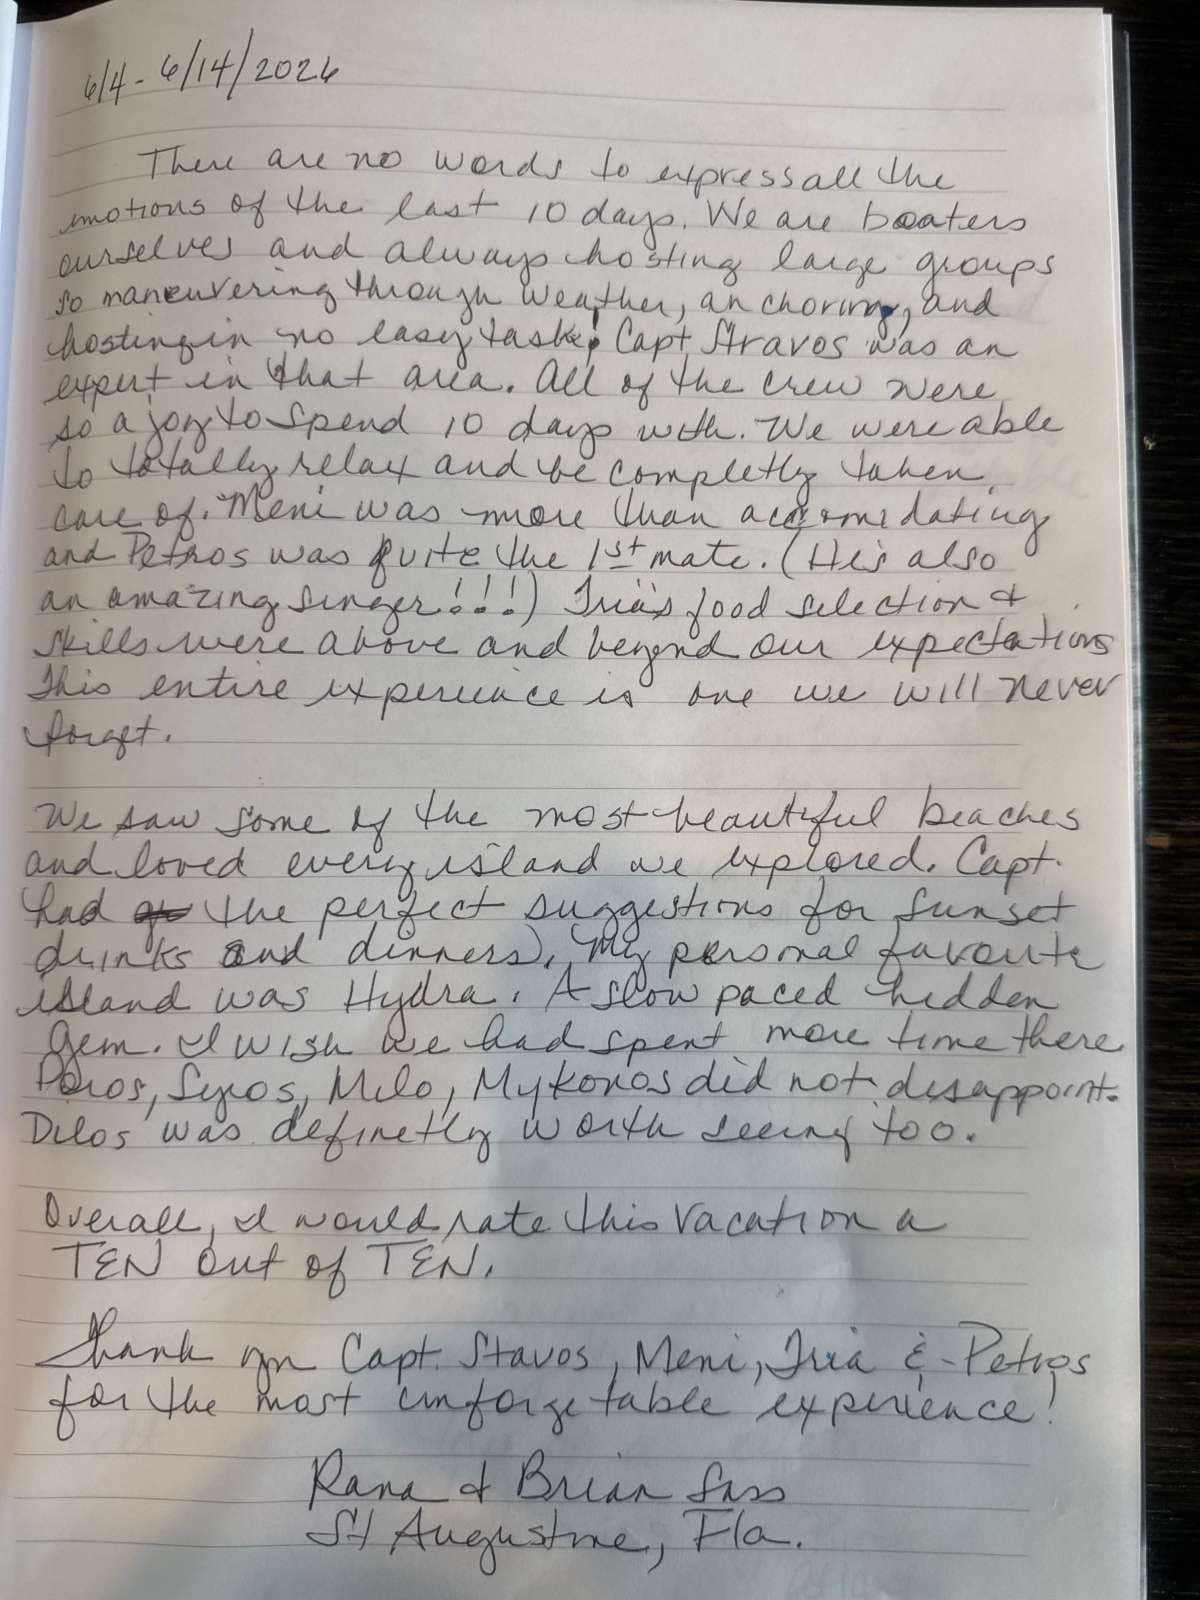 6/4 - 6/14/2026
There are no words to express all the
emotions of the last 10 days. We are boaters
ourselves and always hosting large groups
so maneuvering through weather, anchoring, and
hosting in no easy task! Capt. Stravos was an
expert in that area. All of the crew were
so a joy to spend 10 days with. We were able
to totally relax and be completly taken
care of. Meni was more than accomidating
and Petros was quite the 1st mate. (He's also
an amazing singer!!!) Iria's food selection &
skills were above and beyond our expectations
This entire experience is one we will never
forget.
We saw some of the most beautiful beaches
and loved every island we explored. Capt.
had the perfect suggestions for sunset
drinks and dinners). My personal favorite
island was Hydra. A slow paced hidden
gem. I wish we had spent more time there
Poros, Syros, Milo, Mykonos did not disappoint.
Dilos was definetly worth seeing too.
Overall, I would rate this vacation a
TEN out of TEN.
Thank you Capt. Stavos, Meni, Iria & Petros
for the most unforgetable experience!
Rana & Brian Sass
St Augustine, Fla.